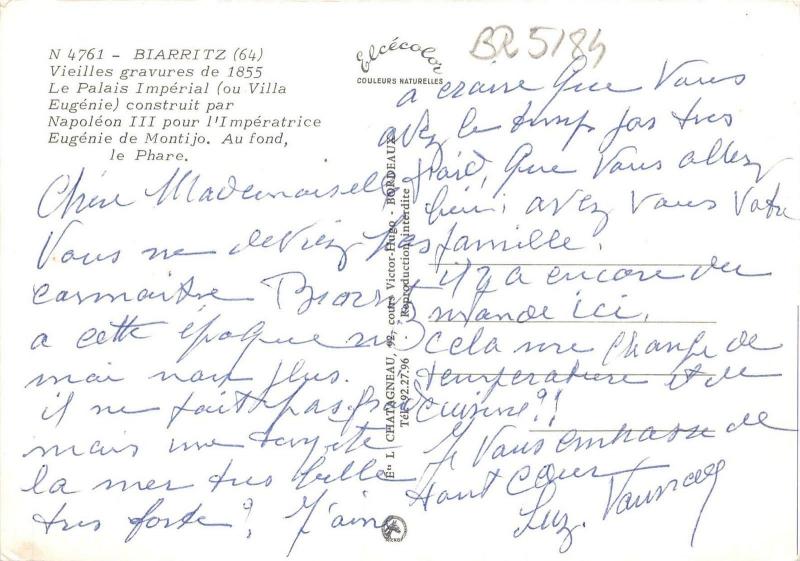 N 4761 - BIARRITZ (64)
Vieilles gravures de 1855
Le Palais Impérial (ou Villa
Eugénie) construit par
Napoléon III pour l'Impératrice
Eugénie de Montijo. Au fond,
le Phare.
Elcécolor
COULEURS NATURELLES
BR 5184
Chère Mademoiselle
Vous ne deviez pas
connaitre
a cette époque ni
moi non plus.
il ne fait pas
mais une
la mer très belle
très forte, J'aime
a croire que vous
avez le temps pas très
froid, que vous allez
bien, avez vous votre
famille.
il y a encore du
monde ici.
cela me change de
température et de
cuisine!!
Je vous embrasse de
tout cœur
Ets L. CHATAGNEAU, 92, cours Victor-Hugo - BORDEAUX
Tél. 92.27.96 Reproduction interdite